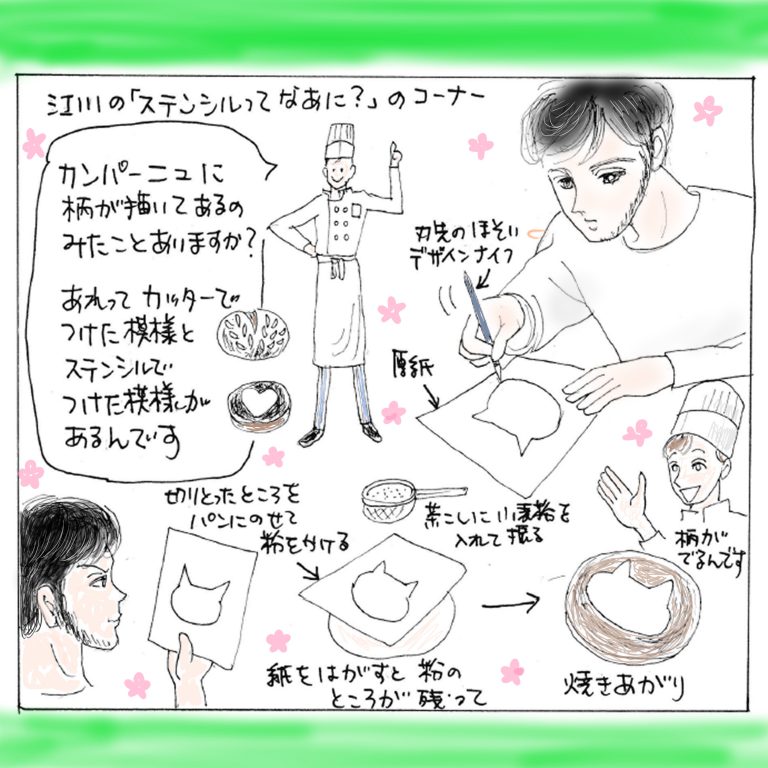 江川の「ステンシルってなあに?」のコーナー
カンパーニュに
柄が描いてあるの
みたことありますか?
あれってカッターで
つけた模様と
ステンシルで
つけた模様が
あるんです
刃先のほそい
デザインナイフ
厚紙
切りとったところを
パンにのせて
粉をかける
茶こしに小麦粉を
入れて振る
柄が
でるんです
紙をはがすと粉の
ところが残って
焼きあがり